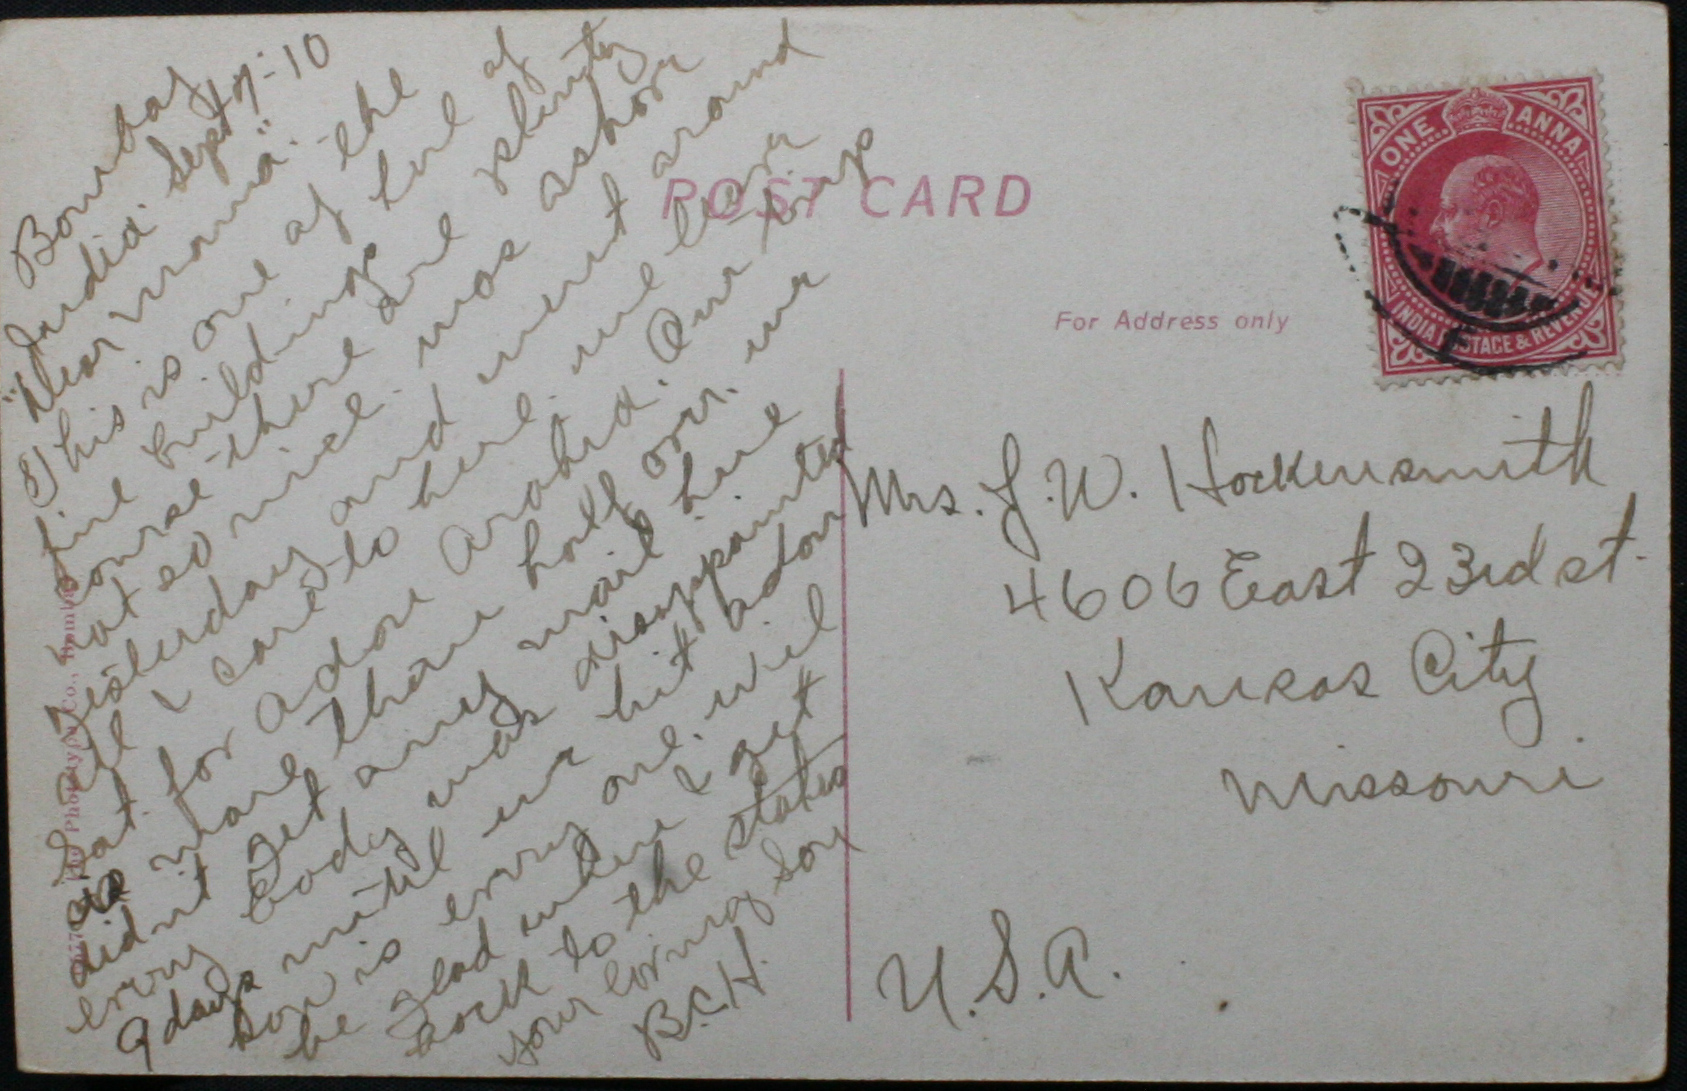 Bombay
India. Sept 7-10
"Dear mama".
This is one of the
fine buildings of here of
course there are plenty
not so nice. was ashor
yesterday and went around
all I care to here. we leave
Sat. for Adon Arabia. Our trip
is more than half over. we
didnt get any mail here
every body was disappointed
9 days until we hit Adon
how is every one. will
be glad when I get
back to the states
your loving Son
B.C.H.
POST CARD
For Address only
ONE ANNA
INDIA POSTAGE & REVENUE
Mrs. J. W. Hockensmith
4606 East 23rd st.
Kansas City
Missouri
U.S.A.
Phototype Co., Bombay